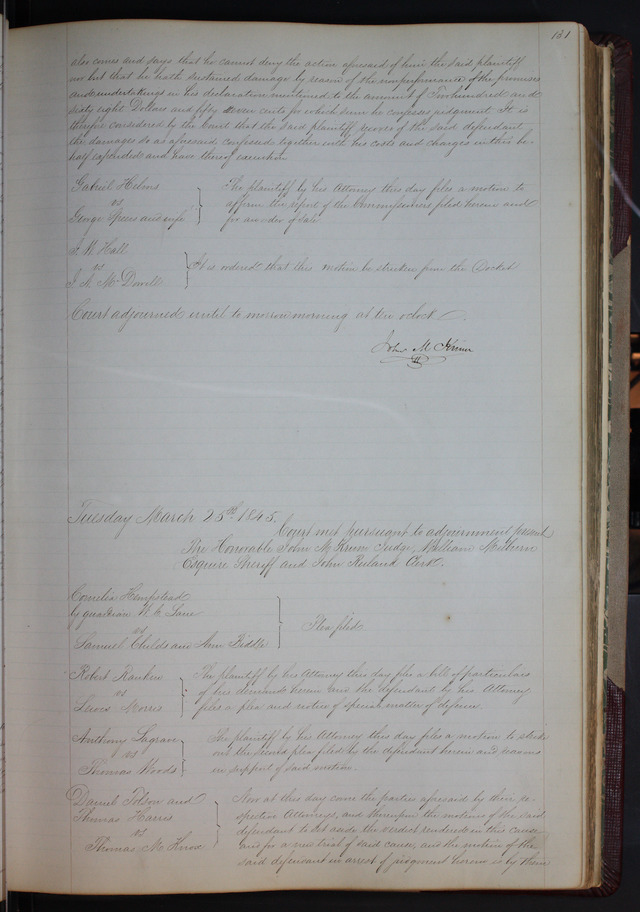 181
also comes and says that he cannot deny the action aforesaid of him the said plaintiff
nor but that he hath sustained damage by reason of the nonperformance of the promises
and undertakings in his declaration mentioned to the amount of Two hundred and
sixty eight Dollars and fifty seven cents for which sum he confesses judgment It is
therefore considered by the Court that the said plaintiff recover of the said defendant
the damages so as aforesaid confessed together with his costs and charges in this be-
half expended and have thereof execution
Gabriel Helms
vs
George Speers and wife
The plaintiff by his Attorney this day files a motion to
affirm the report of the Commissioners filed herein and
for an order of sale
Hall
vs
McDowell
It is ordered that this motion be stricken from the Docket
Court adjourned until to morrow morning at ten oclock.
John M Krum
Tuesday March 25th 1845.
Court met pursuant to adjournment present
The Honorable John M Krum Judge, William Milburn
Esquire Sheriff and John Ruland Clerk.
Cornelia Hempstead
by guardian W. L. Lane
vs
Samuel Childs and Ann Biddle
Plea filed
Robert Rankin
vs
Lewis Morris
The plaintiff by his Attorney this day files a bill of particulars
of his demands herein and the defendant by his Attorney
files a plea and notice of special matter of defence.
Anthony
vs
Thomas Woods
The plaintiff by his Attorney this day files a motion to strike
out the second plea filed by the defendant herein and reasons
in support of said motion.
Daniel Polson and
Thomas Harris
vs
Thomas M Knox
Now at this day come the parties aforesaid by their re-
spective Attorneys, and thereupon the motions of the said
defendant to set aside the verdict rendered in this cause
and for a new trial of said cause, and the motion of the
said defendant in arrest of judgment herein is by them